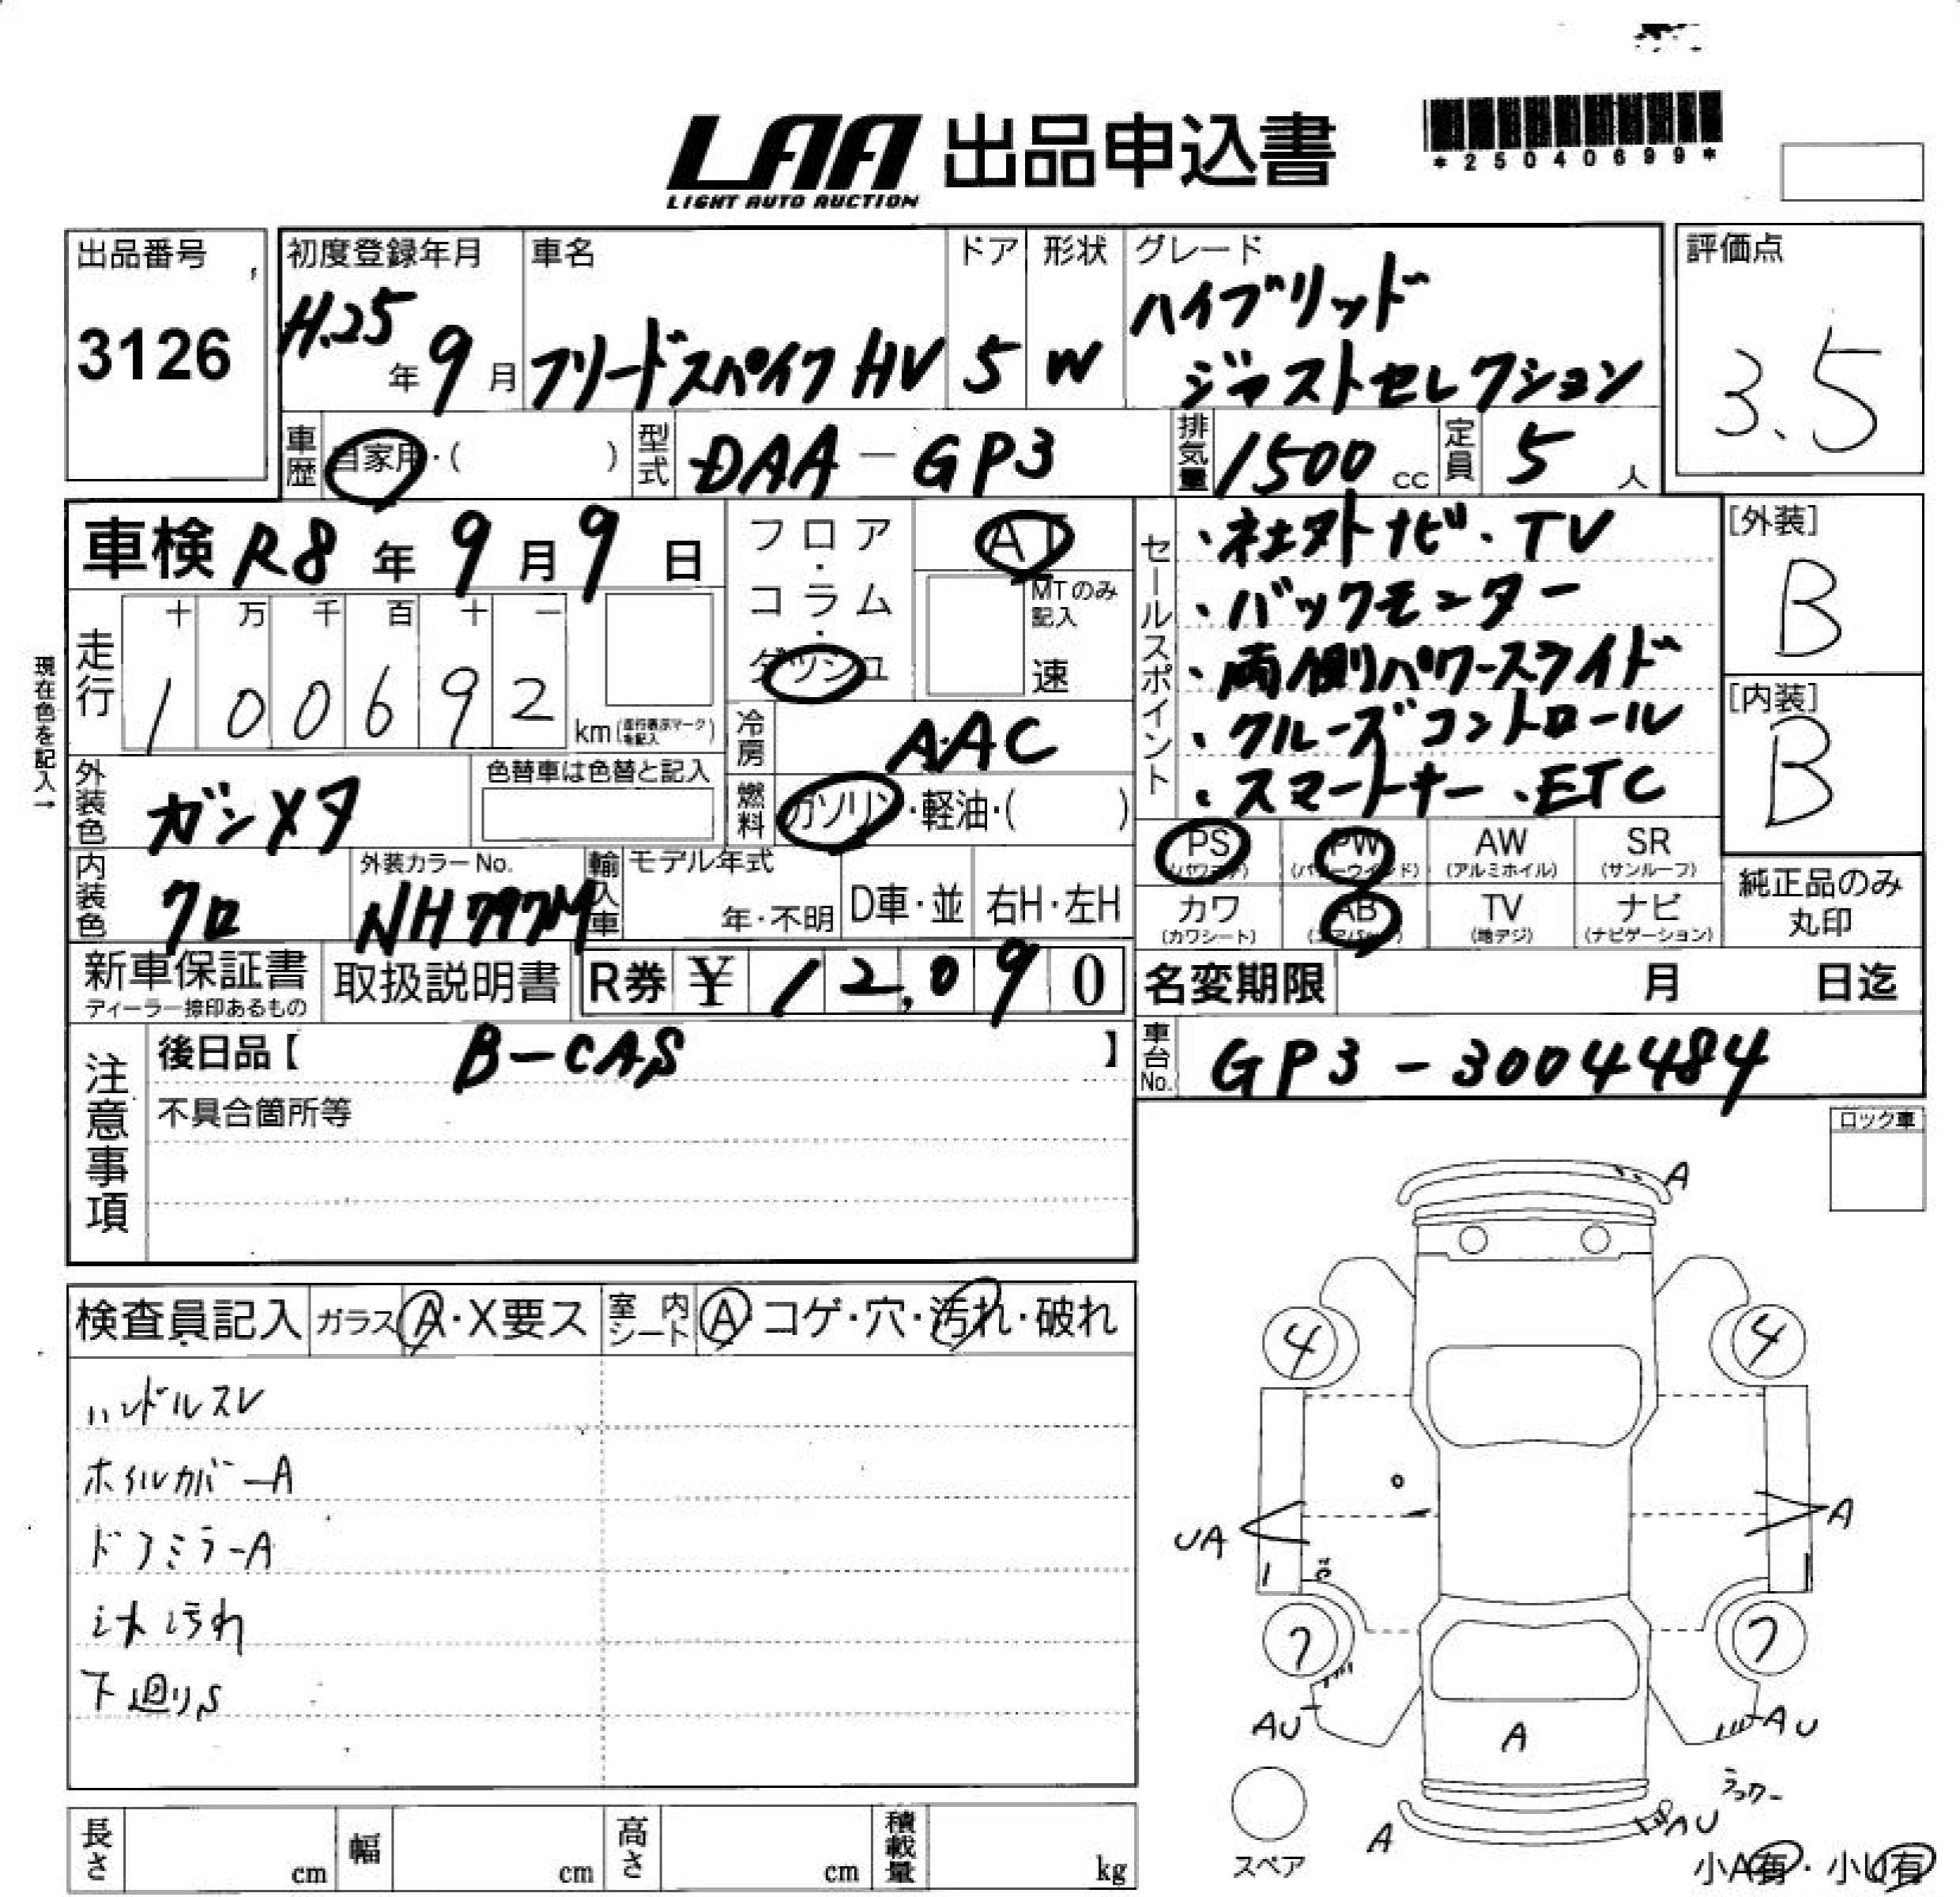 LAA 出品申込書
LIGHT AUTO AUCTION
*25040699*
出品番号
3126
初度登録年月
H.25年 9月
車名
フリードスパイク HV
ドア
5
形状
W
グレード
ハイブリッド
ジャストセレクション
評価点
3.5
車歴 自家用・( )
型式 DAA-GP3
排気量 1500 cc
定員 5 人
車検 R8 年 9 月 9 日
フロア・コラム・ダッシュ
AT
MTのみ記入
速
セールスポイント
・社外ナビ・TV
・バックモニター
・両側パワースライド
・クルーズコントロール
・スマートキー・ETC
[外装]
B
[内装]
B
現在色を記入→
走行
十 万 千 百 十 一
1 0 0 6 9 2
km(走行表示マークを記入)
冷房 AAC
外装色 ガンメタ
色替車は色替と記入
燃料 ガソリン・軽油・( )
PS (パワステ)
PW (パワーウインド)
AW (アルミホイル)
SR (サンルーフ)
カワ (カワシート)
AB (エアバッグ)
TV (地デジ)
ナビ (ナビゲーション)
純正品のみ丸印
内装色 クロ
外装カラーNo.
NH797M
輸入車
モデル年式
年・不明
D車・並
右H・左H
新車保証書
ディーラー捺印あるもの
取扱説明書
R券 ¥ 12,090
名変期限 月 日迄
注意事項
後日品【 B-CAS 】
不具合箇所等
車台No. GP3-3004484
ロック車
検査員記入
ガラス A・X要ス
室内シート A・コゲ・穴・汚れ・破れ
ハンドルスレ
ホイルカバーA
ドアミラーA
シート汚れ
下廻りS
A
4
4
UA
A
7
7
AU
AU
A
A
AU
スペア
小A有・小U有
長さ cm
幅 cm
高さ cm
積載量 kg